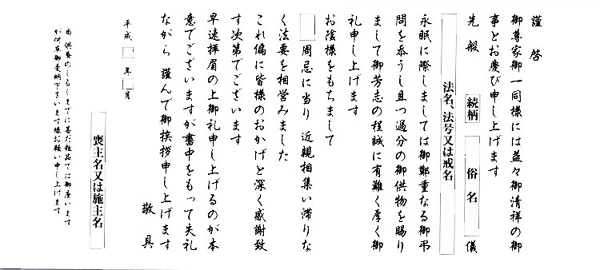 謹啓
御尊家御一同様には益々御清祥の御
事とお慶び申し上げます
先般 続柄 俗名 儀
法名、法号又は戒名
永眠に際しましては御鄭重なる御弔
問を忝うし且つ過分の御供物を賜り
まして御芳志の程誠に有難く厚く御
礼申し上げます
お陰様をもちまして
周忌に当り 近親相集い滞りな
く法要を相営みました
これ偏に皆様のおかげと深く感謝致
す次第でございます
早速拝眉の上御礼申し上げるのが本
意でございますが書中をもって失礼
ながら 謹んで御挨拶申し上げます
敬具
平成 年 月
喪主名又は施主名
尚 供養のしるしまでに甚だ粗品では御座います
が何卒御受納下さいます様お願い申し上げます